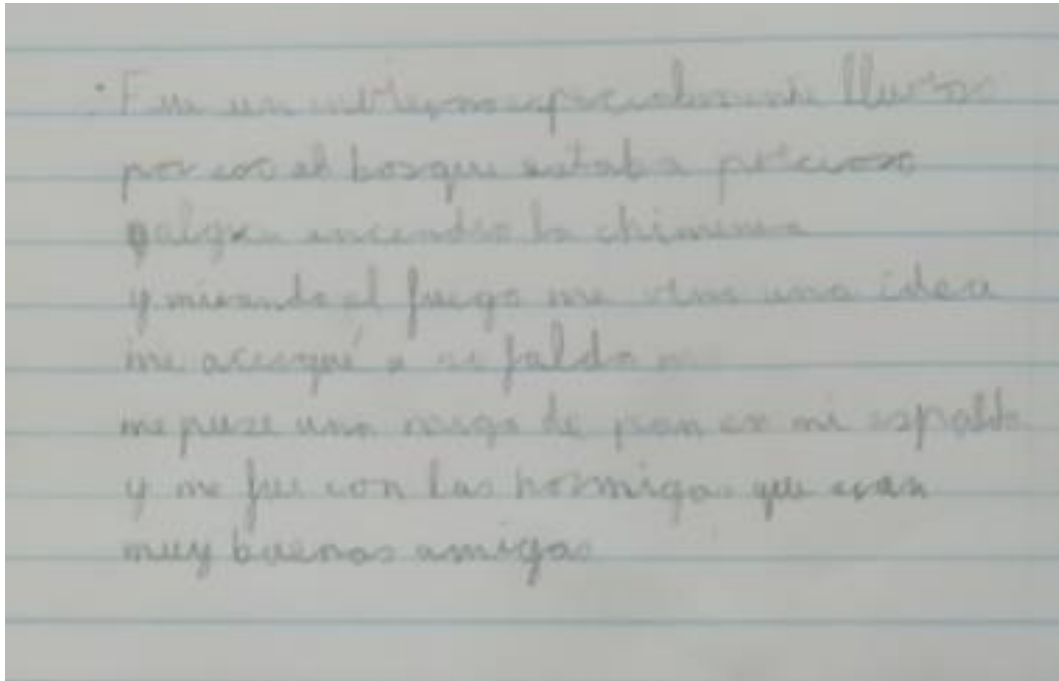 Fue un invierno especialmente lluvioso
por eso el bosque estaba precioso
alguien encendio la chimenea
y mirando el fuego me vino una idea
me acerqué a falda
me puse una de pan en mi espalda
y me fui con las hormigas que eran
muy buenas amigas